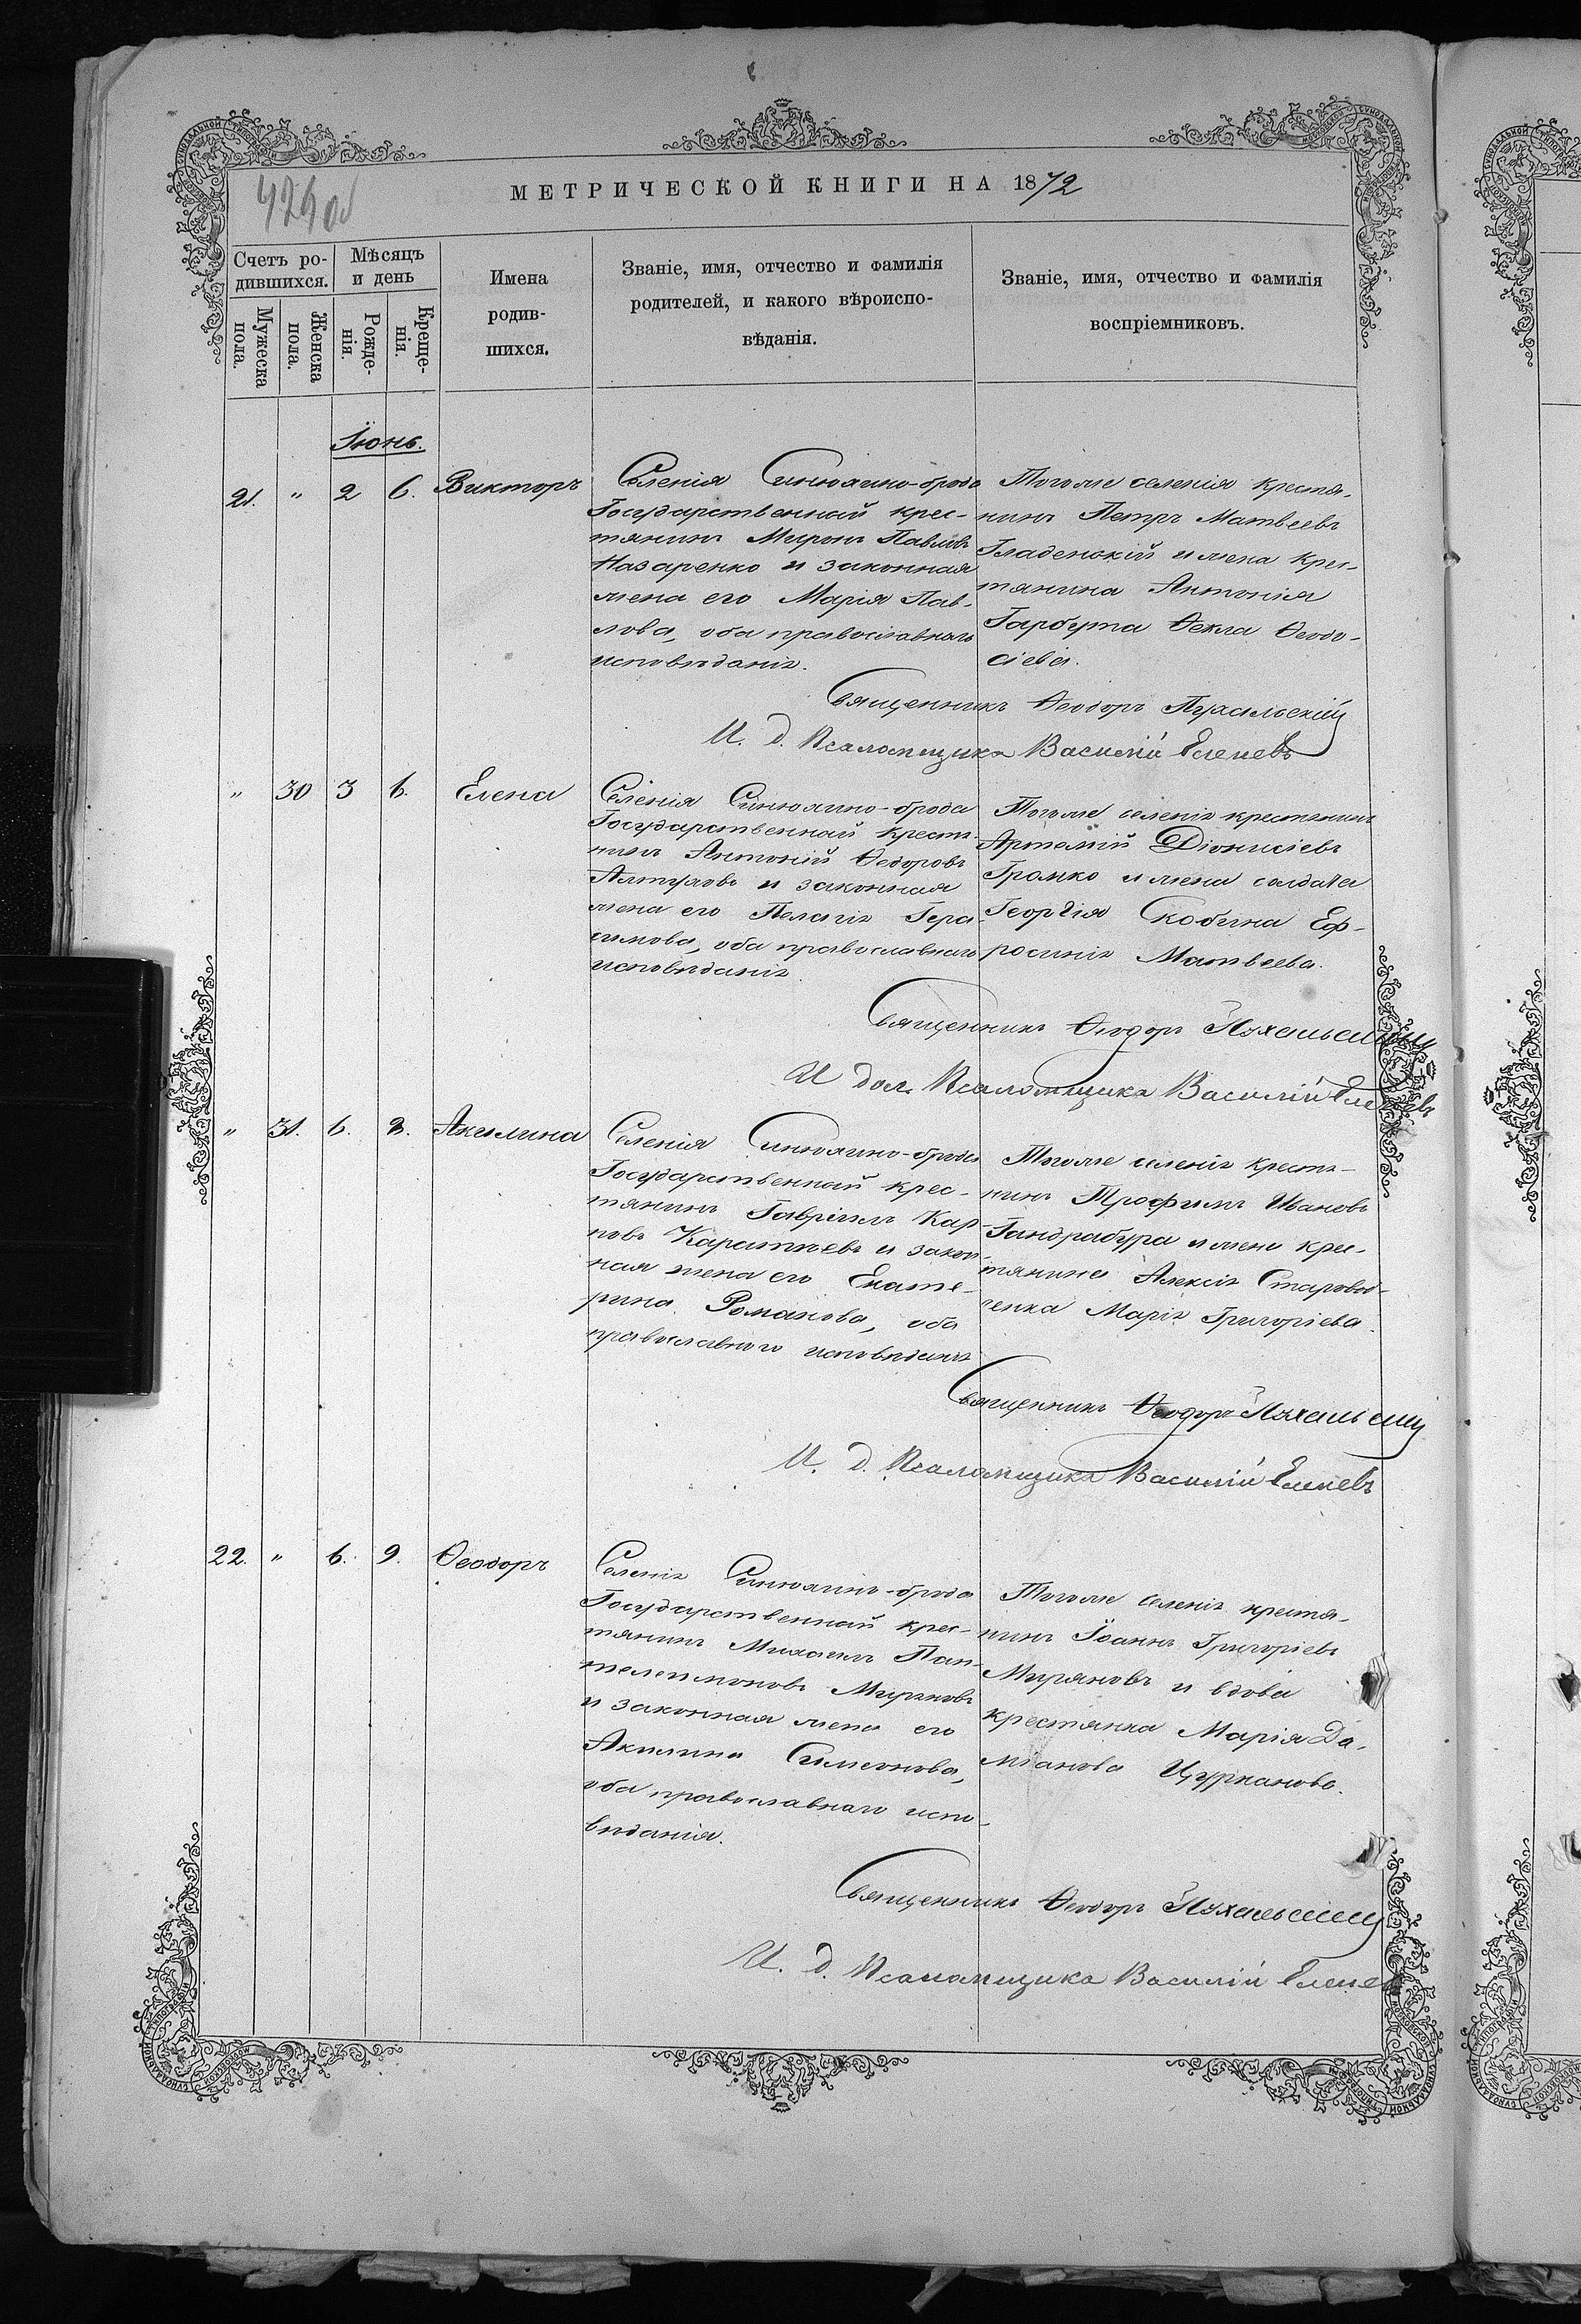 МЕТРИЧЕСКОЙ КНИГИ НА 1872
Счетъ ро-
дившихся.
Мужеска
пола.
Женска
пола.
Мѣсяцъ
и день
Рожде-
нія.
Креще-
нія.
Имена
родив-
шихся.
Званіе, имя, отчество и фамилія
родителей, и какого вѣроиспо-
вѣданія.
Званіе, имя, отчество и фамилія
воспріемниковъ.
Іюнь.
21. " 2 6. Викторъ
Селенія Синюхино-брода
Государственный крес-
тянинъ Миронъ Павловъ
Назаренко и законная
жена его Марія Пав-
лова, оба православнаго
исповѣданія.
Тогоже селенія крестя-
нинъ Петръ Матвеевъ
Гладенькій и жена крес-
тянина Антонія
Гарбуза Ѳекла Ѳеодо-
сіева.
Священникъ Ѳеодоръ
И. д. Псаломщика Василій
" 30 3 6. Елена
Селенія Синюхино-брода
Государственный крестя-
нинъ Антоній Ѳедоровъ
и законная
жена его Пелагія Гера-
симова, оба православнаго
исповѣданія.
Тогоже селенія крестянинъ
Артемій Діонисіевъ
Громко и жена солдата
Георгія Скобина Еф-
росинія Матвеева.
Священникъ Ѳеодоръ
И дол. Псаломщика Василій
" 31. 6. 8. Акилина
Селенія Синюхино-брода
Государственный крес-
тянинъ Гавріилъ Кар-
повъ и закон-
ная жена его Екате-
рина Романова, оба
православного исповѣданія
Тогоже селенія крестя-
нинъ Трофимъ Ивановъ
Гандрабура и жена крес-
тянина Алексія Старовой-
ченка Марія Григоріева.
Священникъ Ѳеодоръ
И. д. Псаломщика Василій
22. " 6. 9. Ѳеодоръ
Селенія Синюхино-брода
Государственный крес-
тянинъ Михаилъ Пан-
телеимоновъ Миряновъ
и законная жена его
Акилина Симеонова,
оба православнаго испо-
вѣданія.
Тогоже селенія крестя-
нинъ Іоаннъ Григоріевъ
Миряновъ и вдова
крестянка Марія Да-
міанова Цурканова.
Священникъ Ѳеодоръ
И. д. Псаломщика Василій